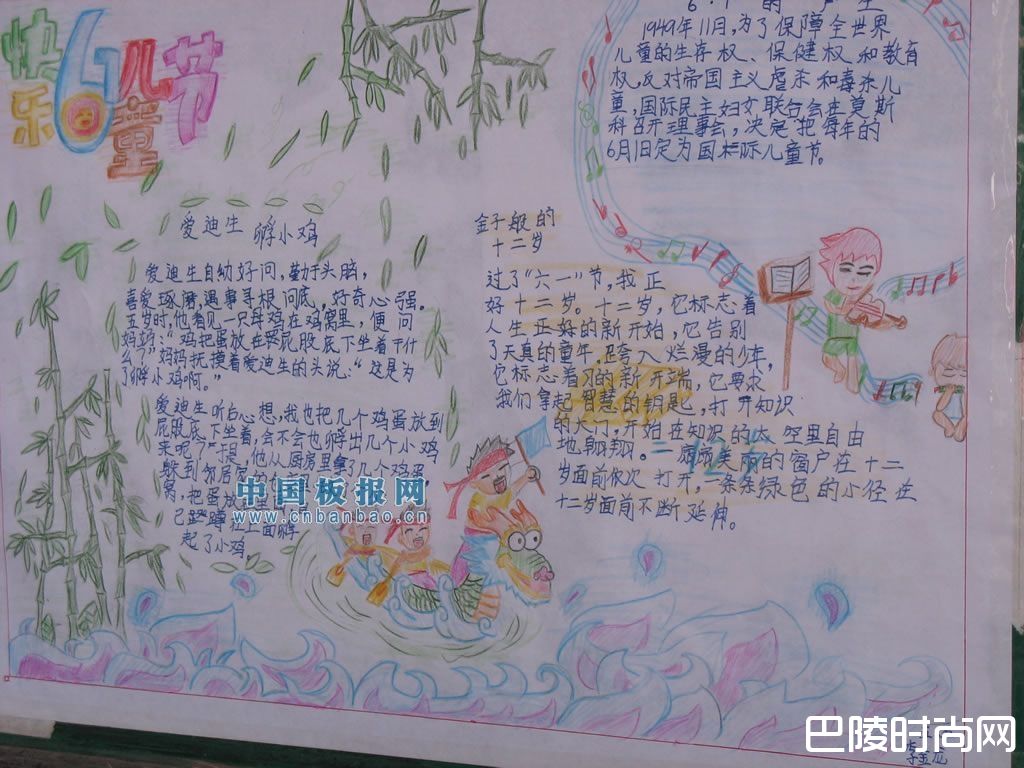 快乐61儿童节
6·1的产生
1949年11月,为了保障全世界
儿童的生存权、保健权和教育
权,反对帝国主义虐杀和毒杀儿
童,国际民主妇女联合会在莫斯
科召开理事会,决定把每年的
6月1日定为国际儿童节。
爱迪生 孵小鸡
爱迪生自幼好问,勤于头脑,
喜爱琢磨,遇事寻根问底,好奇心强。
五岁时,他看见一只母鸡在鸡窝里,便问
妈妈:“鸡把蛋放在屁股底下坐着干什
么?”妈妈抚摸着爱迪生的头说:“这是为
了孵小鸡啊。”
爱迪生听后心想,我也把几个鸡蛋放到
屁股底下坐着,会不会也孵出几个小鸡
来呢?”于是,他从厨房里拿了几个鸡蛋,
躲到邻居
窝,把蛋放
己蹬蹲在上面孵
起了小鸡
金子般的
十二岁
过了“六一”节,我正
好十二岁。十二岁,它标志着
人生正好的新开始,它告别
了天真的童年,是夸入烂漫的少年,
它标志着习的新开端,它要求
我们拿起智慧的钥匙,打开知识
的大门,开始在知识的太空里自由
地翱翔。一扇扇美丽的窗户在十二
岁面前依次打开,一条条绿色的小径在
十二岁面前不断延伸。
12岁
中国板报网
www.cnbanbao.cn
巴陵时尚网